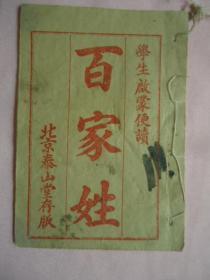 學生啟蒙便讀
百家姓
北京泰山堂存版